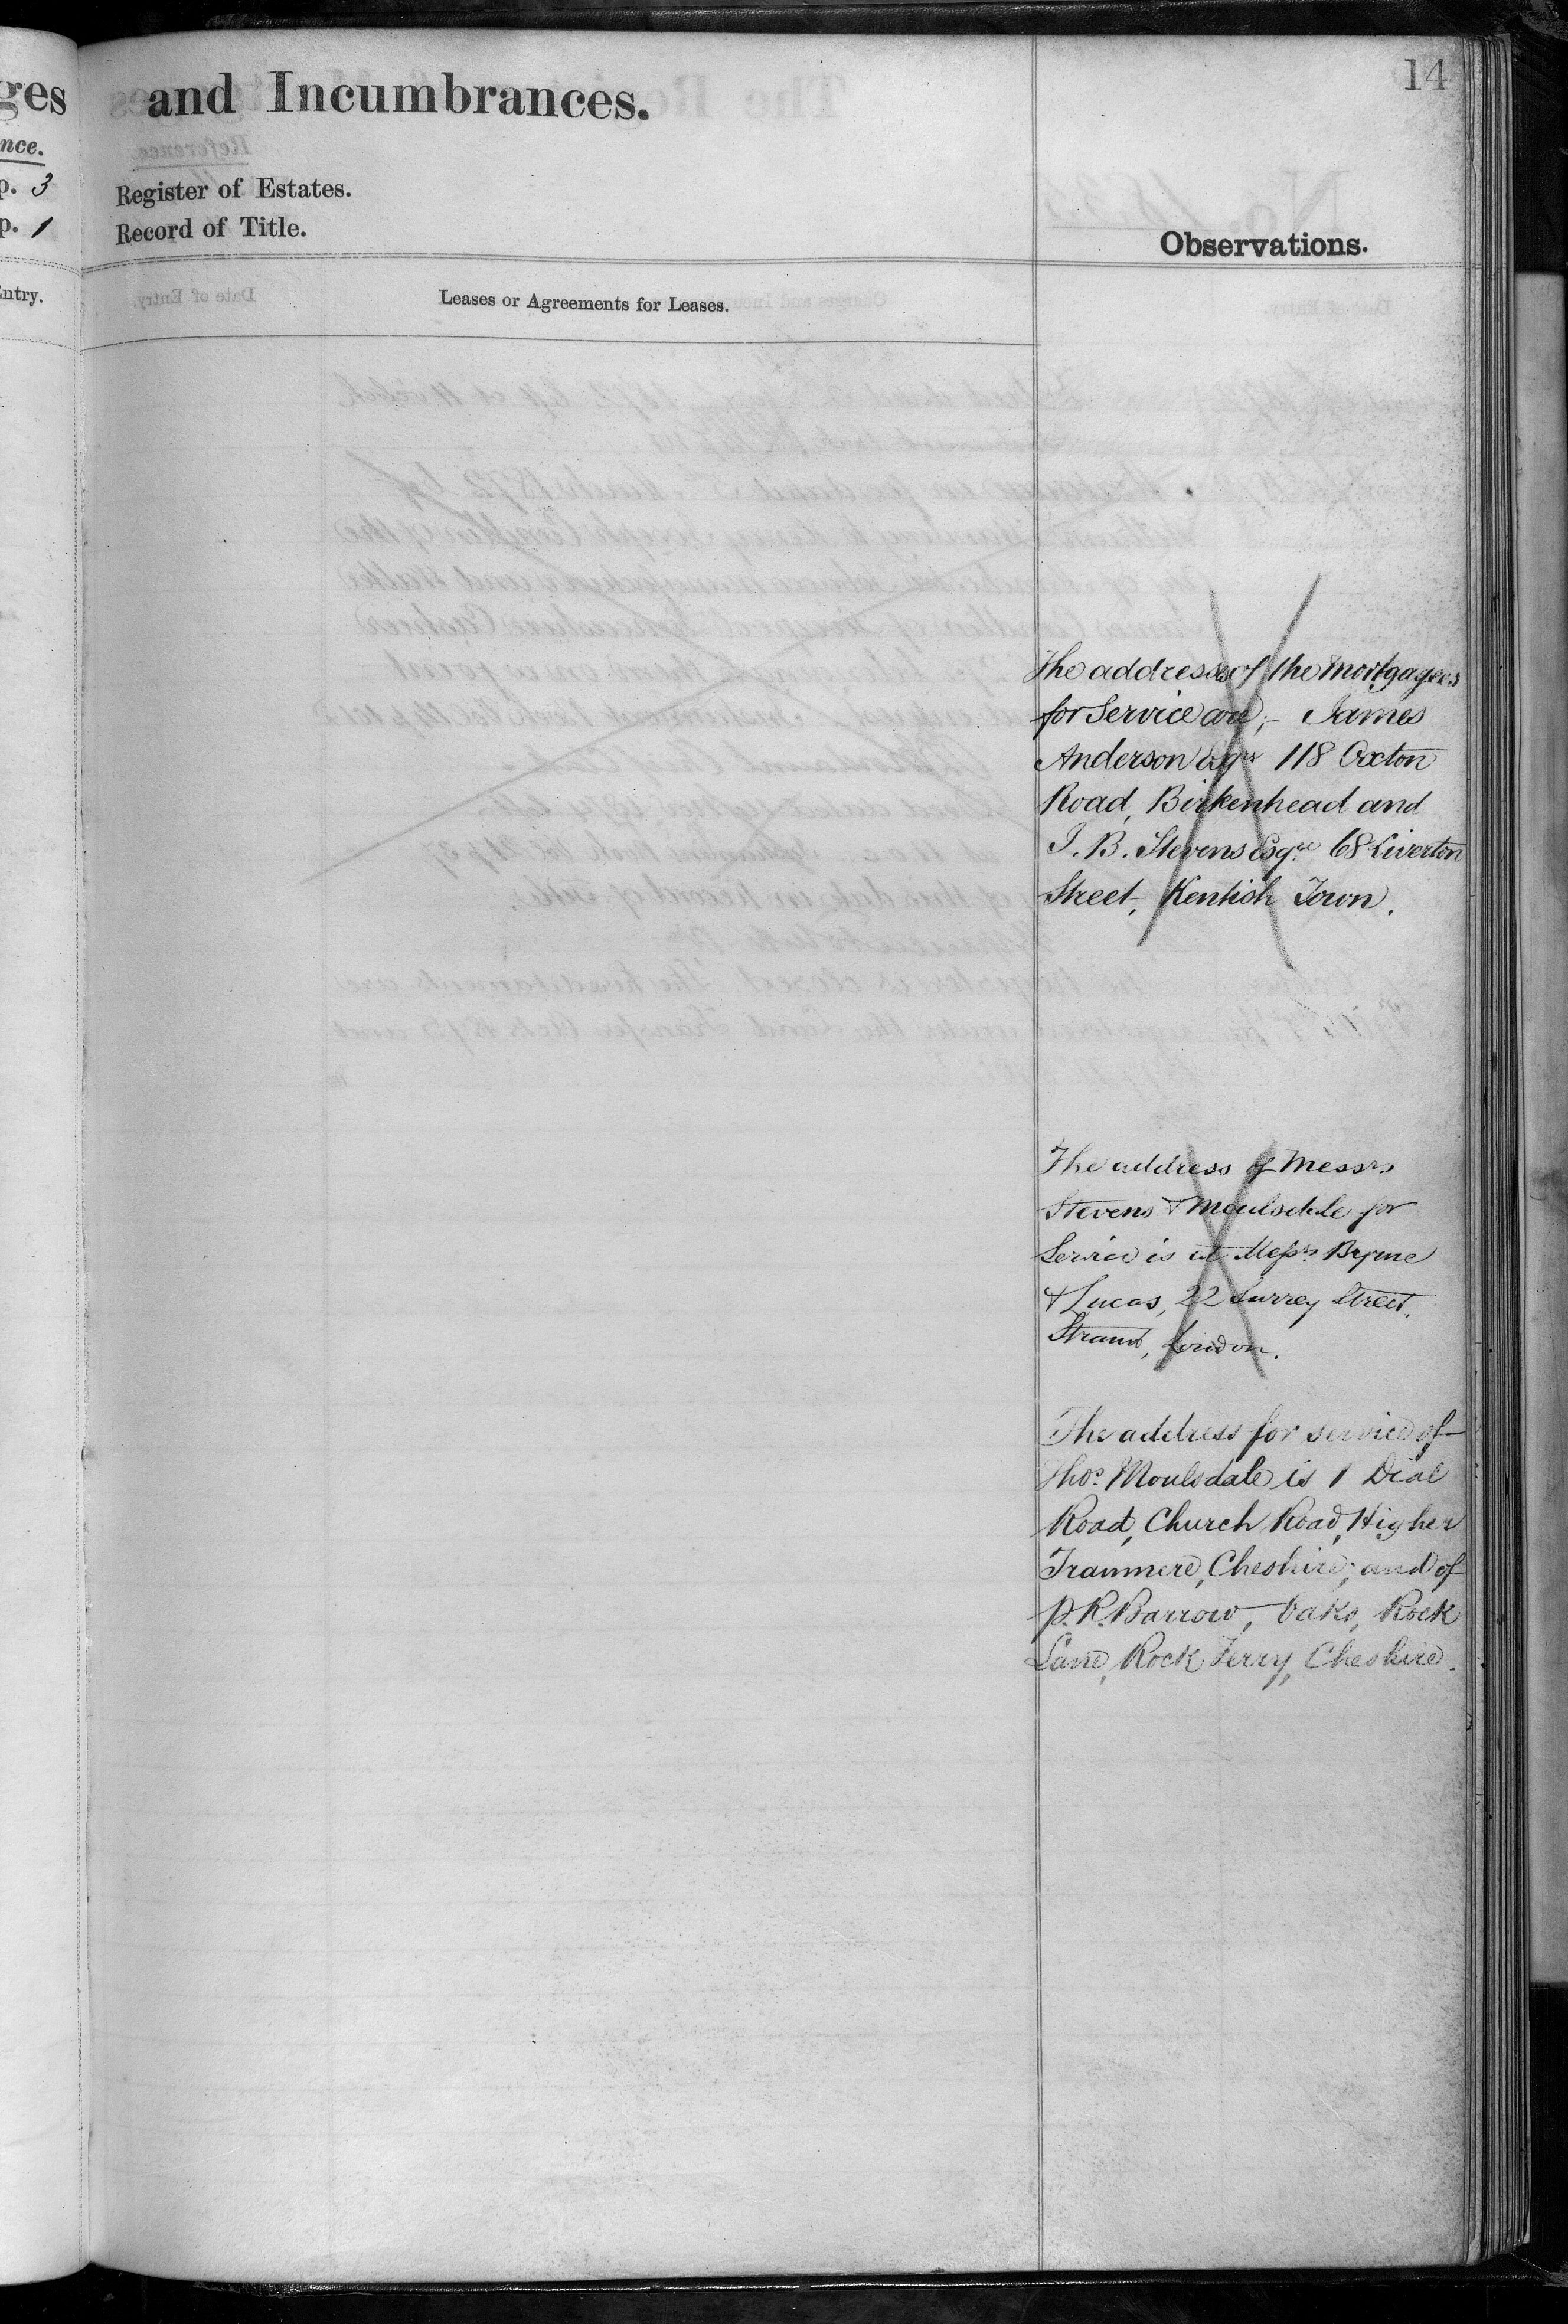 14
ges
and Incumbrances.
nce.
p. 3
Register of Estates.
p. 1
Record of Title.
Observations.
Entry.
Leases or Agreements for Leases.
The addresses of the Mortgagees
for Service are;- James
Anderson Esqre 118 Oxton
Road, Birkenhead and
J. B. Stevens Esqre 68 Liverton
Street, Kentish Town.
The address of Messrs
Stevens & Moulsdale for
Service is at Messrs Byrne
& Lucas, 22 Surrey Street,
Strand, London.
The address for service of
Thos. Moulsdale is 1 Dial
Road, Church Road, Higher
Tranmere, Cheshire; and of
P. R. Barrow, Oaks, Rock
Lane, Rock Ferry, Cheshire.